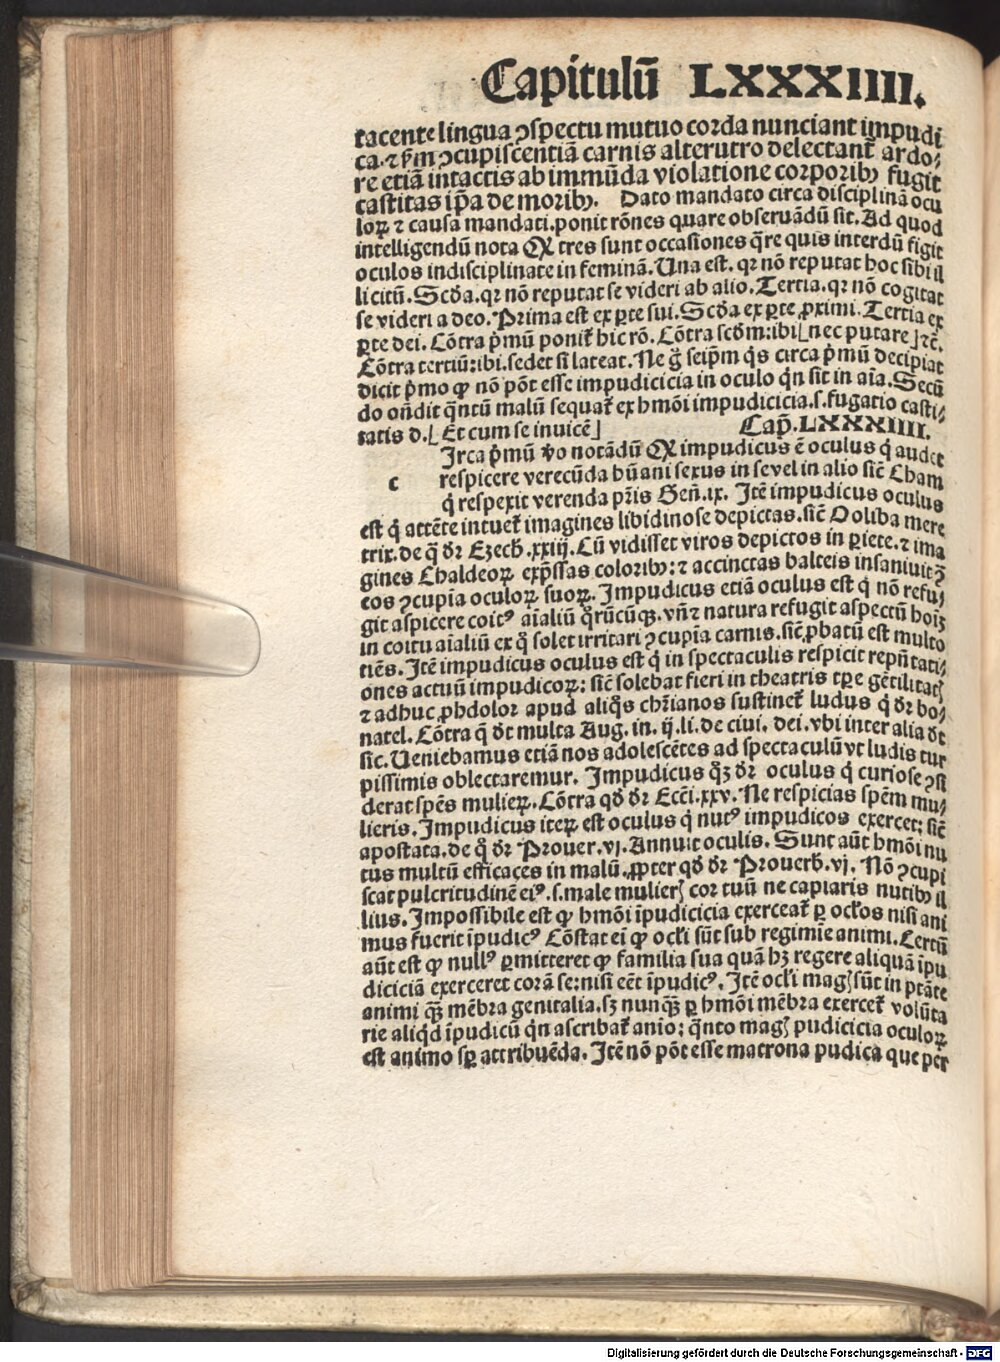 Capitulū LXXXIIII.
tacente lingua ꝯspectu mutuo corda nunciant impudi
ca.⁊ ẜm ꝯcupiscentiā carnis alterutro delectant᷑ ardo⸗
re etiā intactis ab immūda violatione corporibꝫ fugit
castitas ip̄a de moribꝫ. Dato mandato circa disciplinā ocu
loꝝ ⁊ causa mandati.ponit rōnes quare obseruādū sit.Ad quod
intelligendū nota Ꝙ tres sunt occasiones q̄re quis interdū figit
oculos indisciplinate in feminā.Una est.qꝛ nō reputat hoc sibi il
licitū.Scd̄a.qꝛ nō reputat se videri ab alio.Tertia.qꝛ nō cogitat
se videri a deo.Prima est ex ꝑte sui.Scd̄a ex ꝑte ꝓximi.Tertia ex
ꝑte dei.Cōtra p̄mū ponit᷑ hic rō.Cōtra scd̄m:ibi[nec putare]⁊c̄.
Cōtra tertiū:ibi.sedet si lateat.Ne g̊ seip̄m q̇s circa p̄mū decipiat
dicit p̄mo ꝙ nō pōt esse impudicicia in oculo q̇n sit in aīa.Secū
do on̄dit q̄ntū malū sequat᷑ ex hmōi impudicicia.s.fugatio casti⸗
tatis d.[Et cum se inuicē] Cap̄.LXXXIIII.
c Irca p̄mū v̊o notādū Ꝙ impudicus ē oculus q̇ audet
respicere verecūda hūani sexus in se vel in alio sic̄ Cham
q̇ respexit verenda p̄ris Gen̄.ix. Itē impudicus oculus
est q̇ attēte intuet᷑ imagines libidinose depictas.sic̄ Ooliba mere
trix.de q̄ dr̄ Ezech̄.xxiij.Cū vidisset viros depictos in ꝑiete.⁊ ima
gines Chaldeoꝝ exp̄ssas coloribꝫ:⁊ accinctas balteis insaniuit
eos ꝯcupīa oculoꝝ suoꝝ.Impudicus etiā oculus est q̇ nō refu⸗
git aspicere coitꝰ aīaliū q̊rūcūqꝫ.vn̄ ⁊ natura refugit aspectū hoīs
in coitu aīaliū ex q̊ solet irritari ꝯcupīa carnis.sic̄ ꝓbatū est multo
tiēs.Itē impudicus oculus est q̇ in spectaculis respicit repn̄tati⸗
ones actuū impudicoꝝ:sic̄ solebat fieri in theatris tꝑe gētilitatꝭ
⁊ adhuc ꝓhdolor apud aliq̊s chr̄ianos sustinet᷑ ludus q̇ dr̄ bo⸗
natel.Cōtra q̄ dt̄ multa Aug.in.ij.li.de ciui. dei.vbi inter alia dt̄
sic.Ueniebamus etiā nos adolescētes ad spectaculū vt ludis tur
pissimis oblectaremur. Impudicus qꝫ dr̄ oculus q̇ curiose ꝯsi
derat spēs mulieꝝ.Cōtra qd̄ dr̄ Ecc̄i.xxv.Ne respicias spēm mu⸗
lieris.Impudicus iteꝝ est oculus q̇ nutꝰ impudicos exercet:sic̄
apostata.de q̊ dr̄ Prouer.vj.Annuit oculis. Sunt aūt hmōi nu
tus multū efficaces in malū.ꝓpter qd̄ dr̄ Prouerb̄.vj. Nō ꝯcupi
scat pulcritudinē eiꝰ.s.male mulierꝭ cor tuū ne capiaris nutibꝫ il
lius.Impossibile est ꝙ hmōi īpudicicia exerceat᷑ ꝑ ocl̄os nisi ani
mus fuerit īpudicꝰ Cōstat ei ꝙ ocl̄i sūt sub regimīe animi.Certū
aūt est ꝙ nullꝰ ꝑmitteret ꝙ familia sua quā hꝫ regere aliquā īpu
diciciā exerceret corā se:nisi eēt īpudicꝰ.Itē ocl̄i magꝭ sūt in ptāte
animi qꝫ mēbra genitalia.sꝫ nunqꝫ ꝑ hmōi mēbra exercet᷑ volūta
rie aliq̇d īpudicū q̇n ascribat᷑ anīo:q̄nto magꝭ pudicicia oculoꝝ
est animo sꝑ attribuēda.Itē nō pōt esse matrona pudica que per
Digitalisierung gefördert durch die Deutsche Forschungsgemeinschaft - DFG